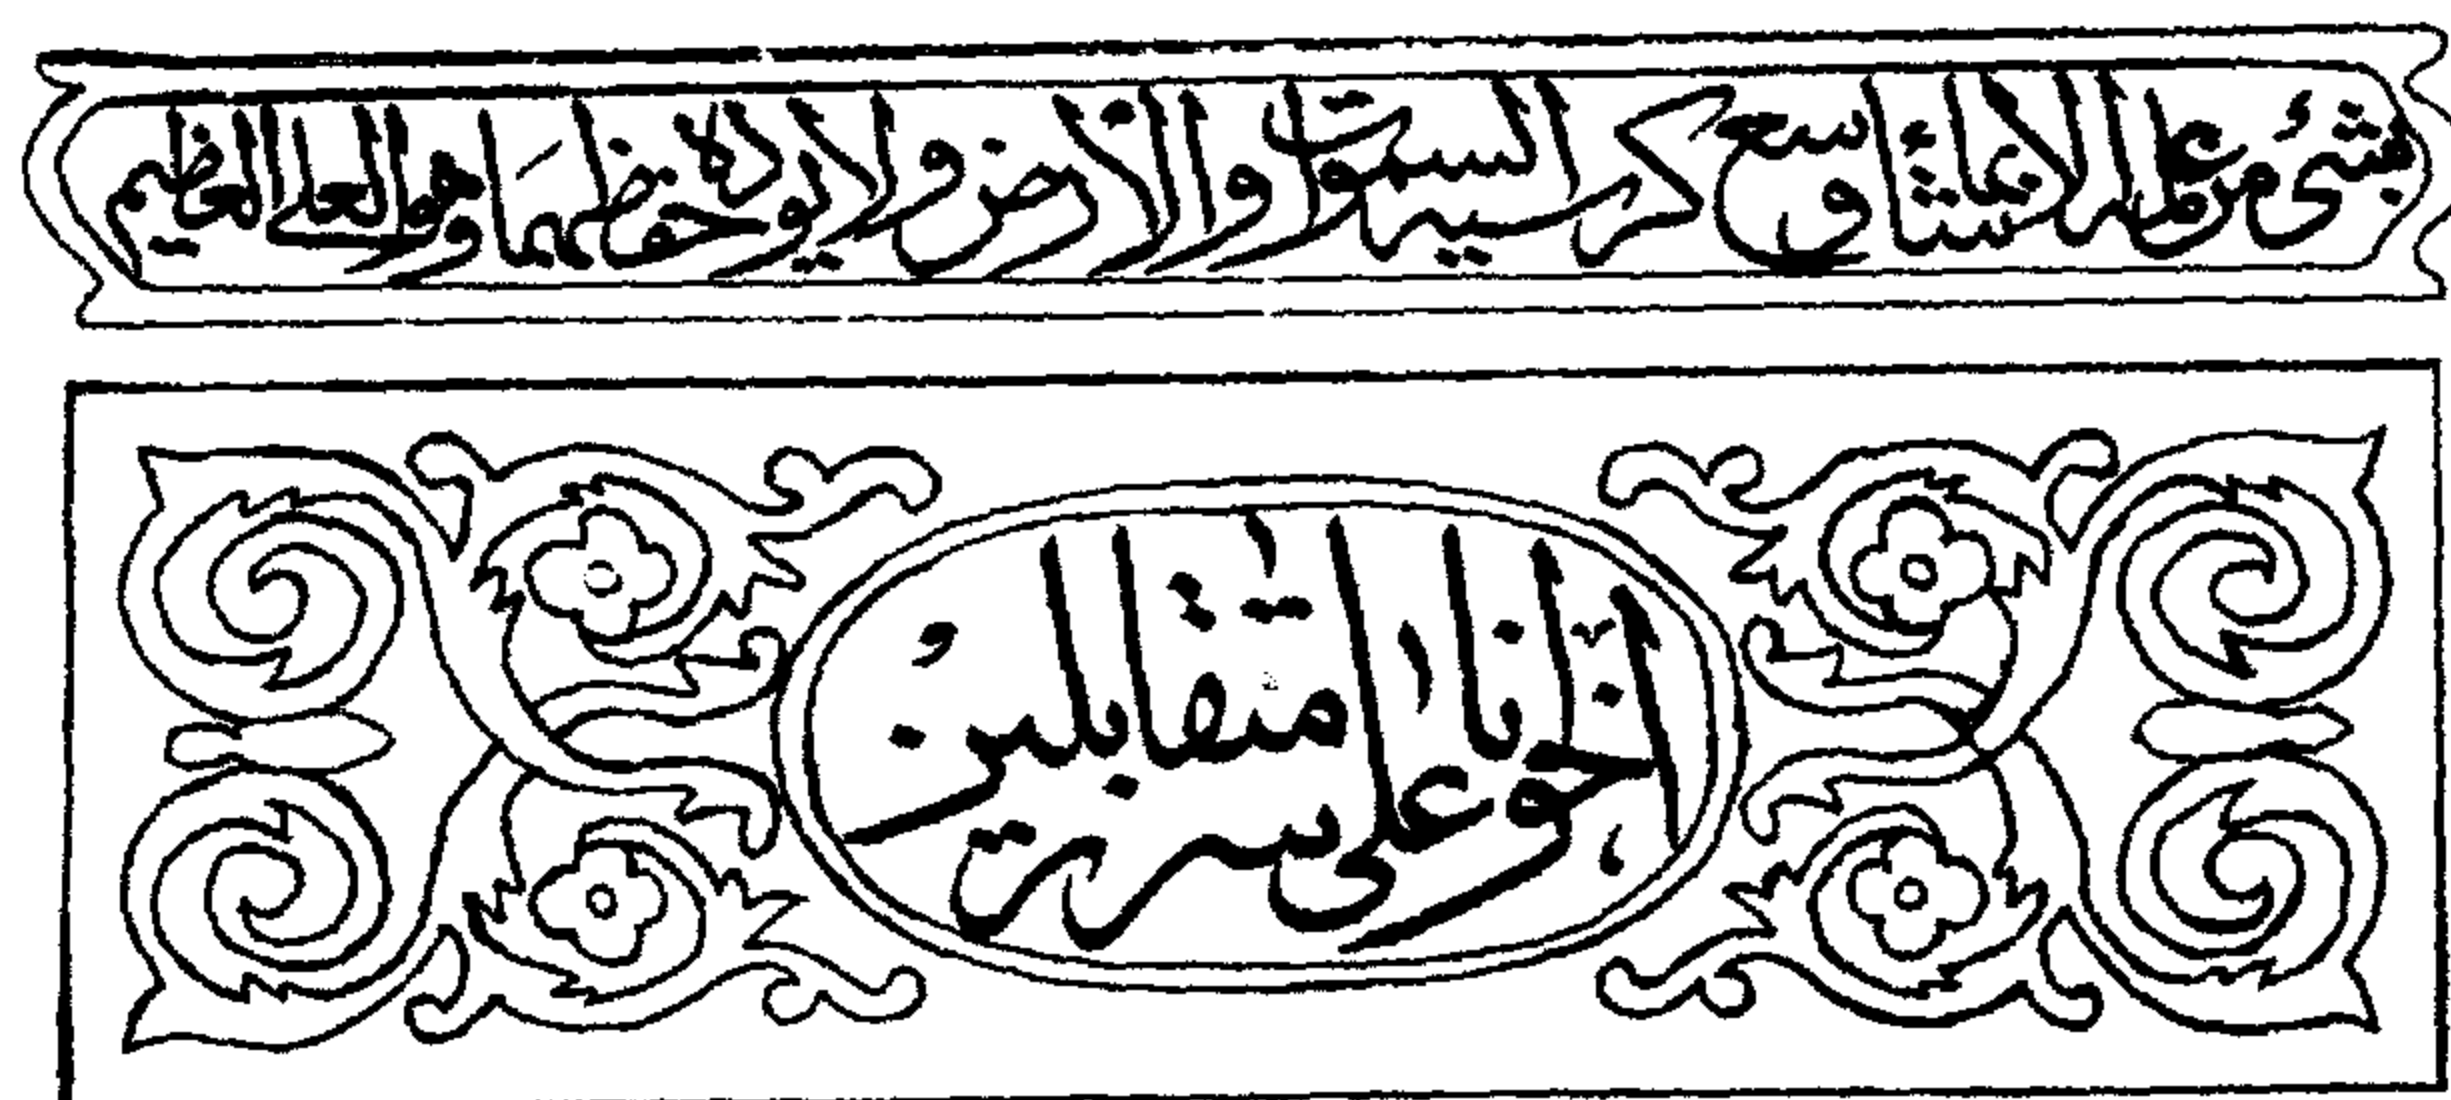 بشئ من علمه الا بما شاء وسع كرسيه السموت والارض ولا يوده حفظهما وهو العلي العظيم
اخوانا على سرر متقابلين